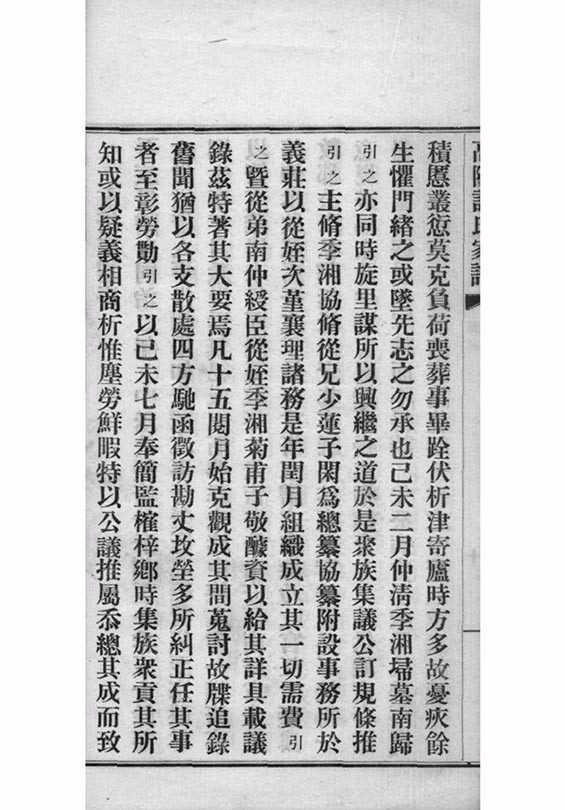 高陽許氏家譜
積愆叢愆莫克負荷喪葬事畢跧伏析津寄廬時方多故憂疚餘
生懼門緒之或墜先志之勿承也己未二月仲清季湘埽墓南歸
引之亦同時旋里謀所以興繼之道於是聚族集議公訂規條推
引之主脩季湘協脩從兄少蓮子閑爲總纂協纂附設事務所於
義莊以從姪次堇襄理諸務是年閏月組織成立其一切需費引
之暨從弟南仲綬臣從姪季湘菊甫子敬醵資以給其詳具載議
錄茲特著其大要焉凡十五閱月始克觀成其間蒐討故牒追錄
舊聞猶以各支散處四方馳函徵訪勘丈坟塋多所糾正任其事
者至彰勞勩引之以己未七月奉簡監榷梓鄉時集族衆貢其所
知或以疑義相商析惟塵勞鮮暇特以公議推屬忝總其成而致